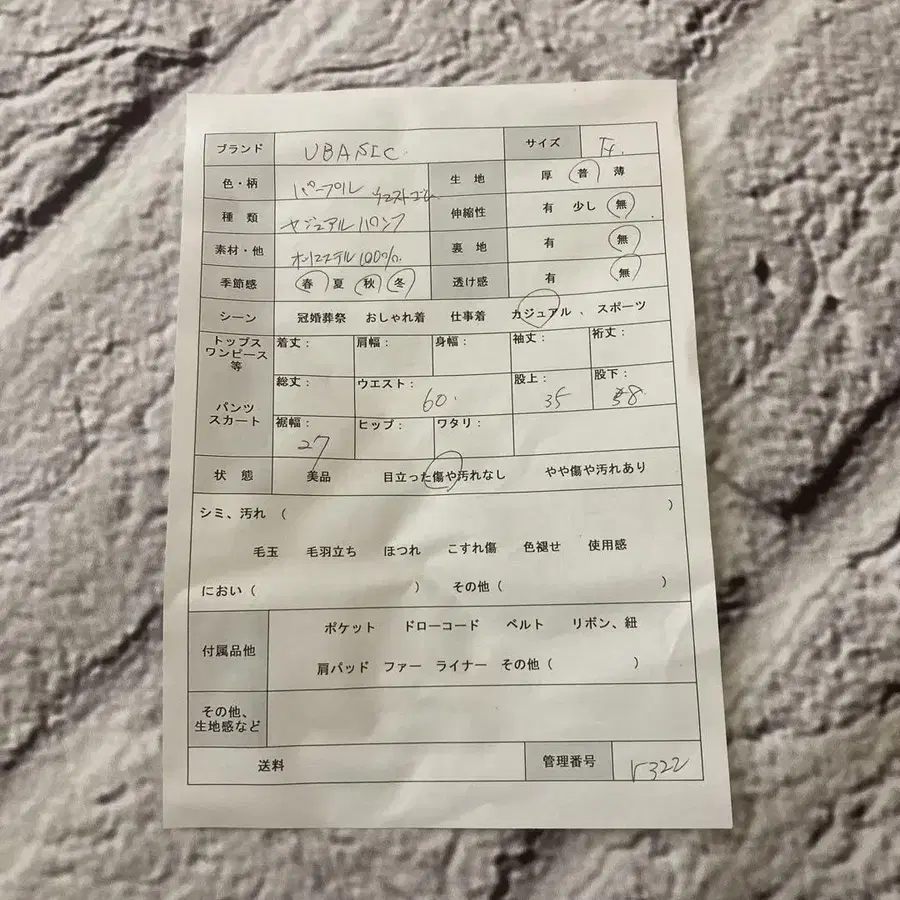 ブランド UBASIC サイズ F
色・柄 パープル 生地 厚 普 薄
ウエストゴム
種類 カジュアルパンツ 伸縮性 有 少し 無
素材・他 ポリエステル100% 裏地 有 無
季節感 春 夏 秋 冬 透け感 有 無
シーン 冠婚葬祭 おしゃれ着 仕事着 カジュアル 、 スポーツ
トップス
ワンピース
等
着丈： 肩幅： 身幅： 袖丈： 裄丈：
パンツ
スカート
総丈： ウエスト： 60 股上： 35 股下： 58
裾幅： 27 ヒップ： ワタリ：
状態 美品 目立った傷や汚れなし やや傷や汚れあり
シミ、汚れ （ ）
毛玉 毛羽立ち ほつれ こすれ傷 色褪せ 使用感
におい（ ） その他（ ）
付属品他 ポケット ドローコード ベルト リボン、紐
肩パッド ファー ライナー その他（ ）
その他、
生地感など
送料 管理番号 r322